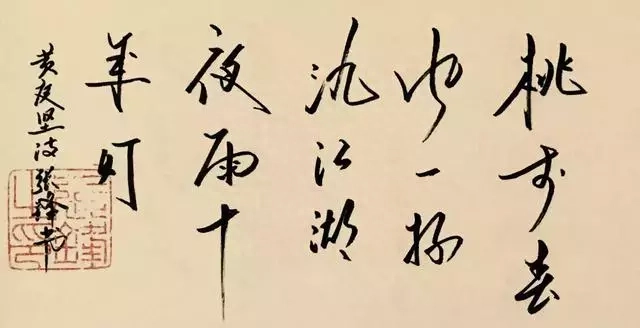 桃李春
风一杯
酒江湖
夜雨十
年灯
黄庭坚诗张锋书